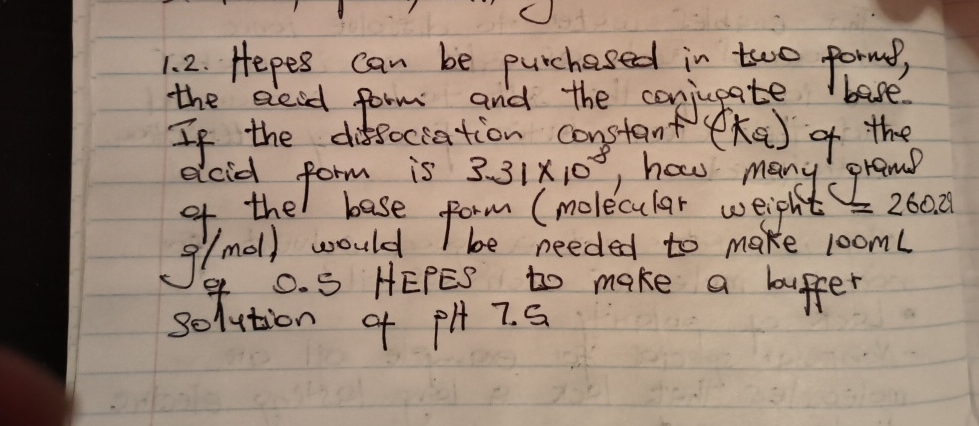 1.2. Hepes can be purchased in two forms,
the acid form and the conjugate base.
If the dissociation constant (Ka) of the
acid form is 3.31 x 10⁻⁸, how many grams
of the base form (molecular weight = 260.29
g/mol) would be needed to make 100mL
of 0.5 HEPES to make a buffer
solution of pH 7.5